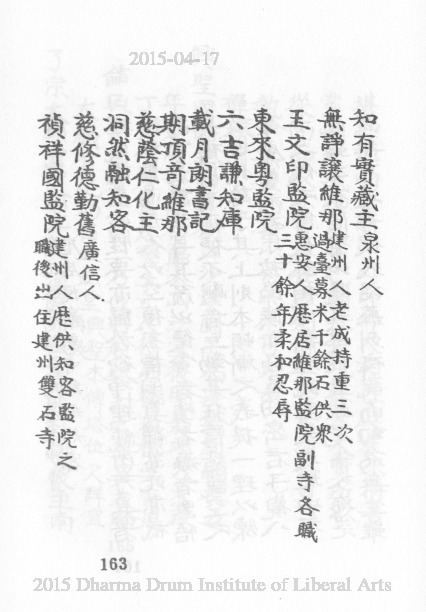 2015-04-17
知有實藏主 泉州人
無諍讓維那 建州人老成持重三次
過臺募米千餘石供眾
玉文印監院 惠安人歷居維那監院副寺各職
三十餘年柔和忍辱
東來粵監院
六吉謙知庫
載月朗書記
期頂奇維那
慈蔭仁化主
洞然融知客
慈修德勤舊 廣信人
禎祥國監院 建州人歷供知客監院之
職後出住建州雙石寺
163
2015 Dharma Drum Institute of Liberal Arts